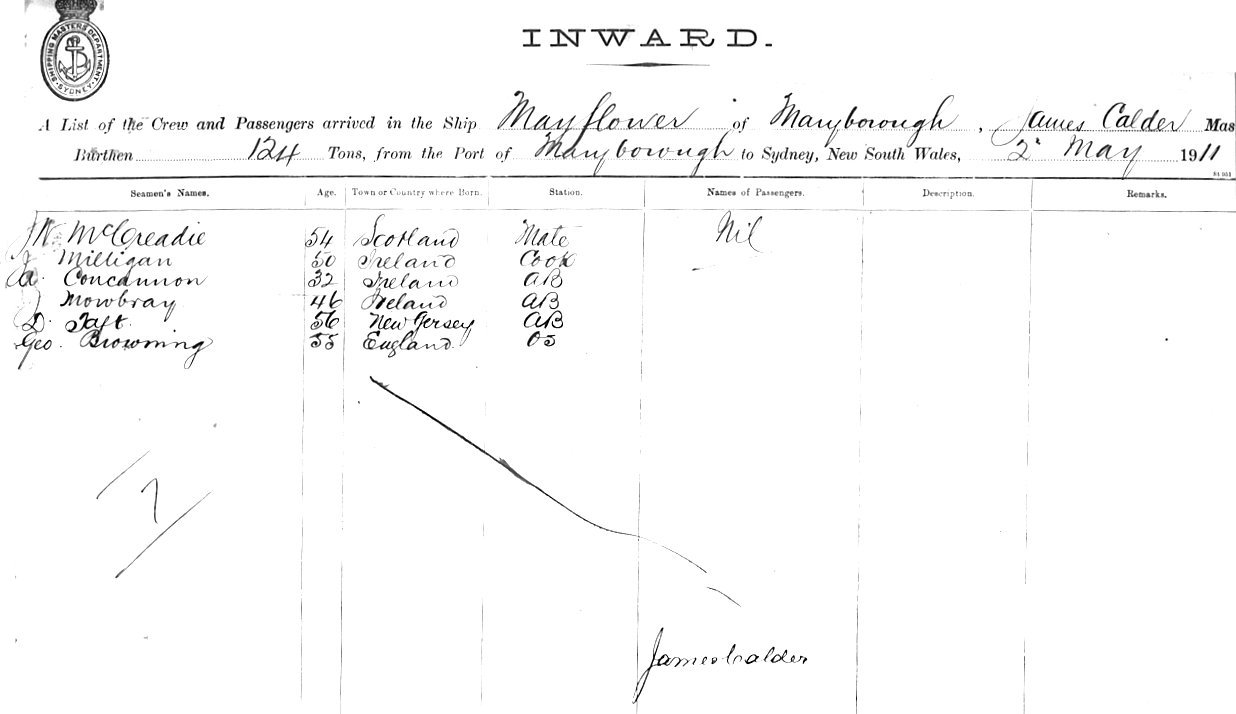 SHIPPING MASTERS DEPARTMENT
SYDNEY
INWARD.
A List of the Crew and Passengers arrived in the Ship Mayflower of Maryborough, James Calder Mas
Burthen 124 Tons, from the Port of Maryborough to Sydney, New South Wales, 2 May 1911
Seamen's Names. Age. Town or Country where Born. Station. Names of Passengers. Description. Remarks.
McCreadie 54 Scotland Mate Nil
J Milligan 50 Ireland Cook
A. Concannon 32 Ireland AB
J Mowbray 46 Ireland AB
D. Taft. 56 New Jersey AB
Geo. Browning 55 England. OS
7
James Calder